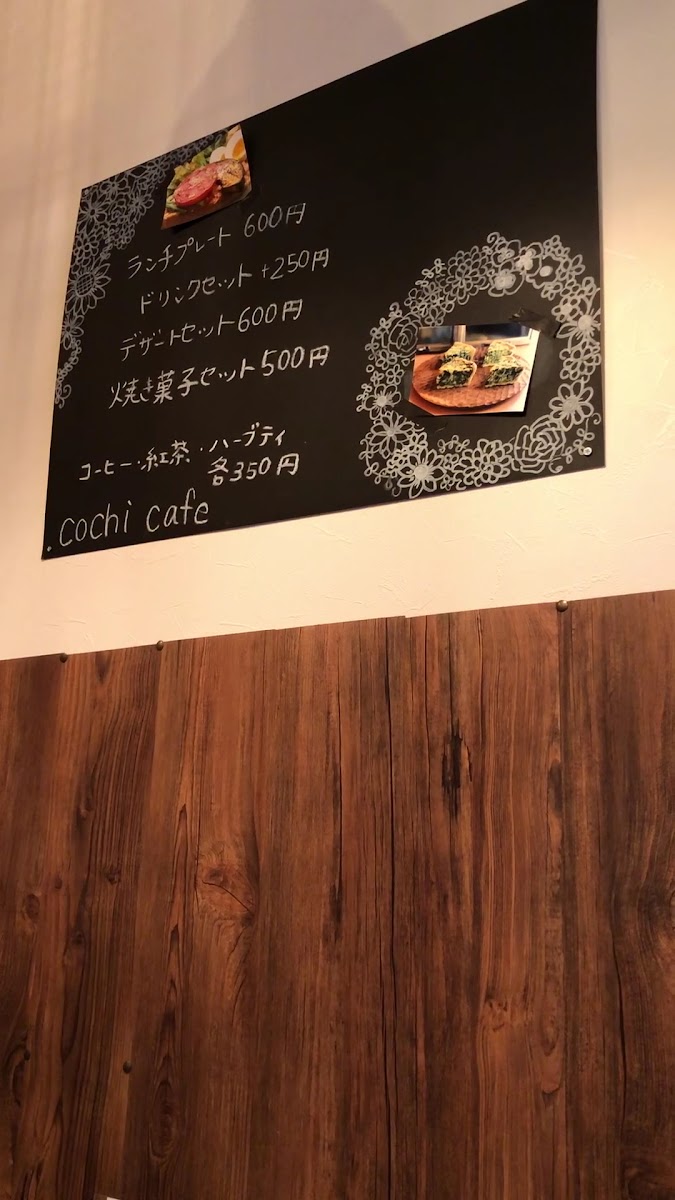 ランチプレート 600円
ドリンクセット +250円
デザートセット 600円
焼き菓子セット 500円
コーヒー・紅茶・ハーブティ
各350円
cochi cafe